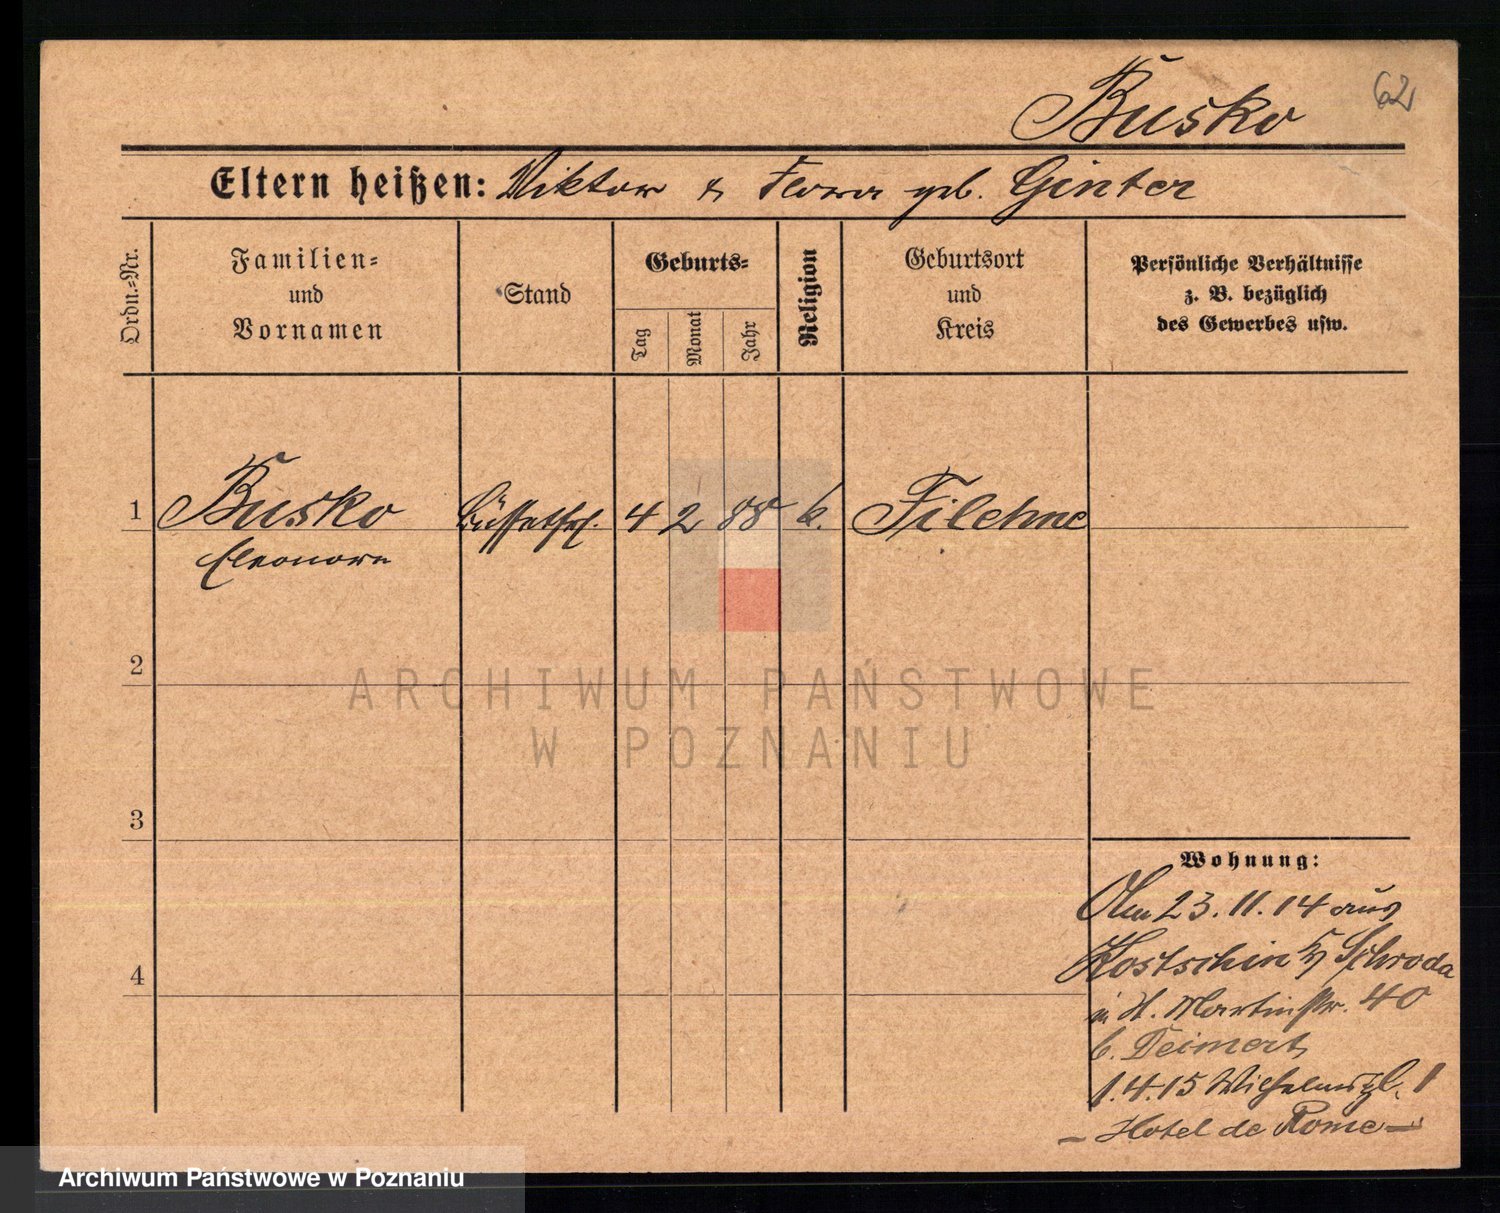 Busko
62
Eltern heißen: Viktor & Flora geb. Ginter
Ordn.-Nr.
Familien-
und
Vornamen
Stand
Geburts-
Tag
Monat
Jahr
Religion
Geburtsort
und
Kreis
Persönliche Verhältnisse
z. B. bezüglich
des Gewerbes usw.
1 Busko Büffetfrl. 4 2 88 k. Filehne
Eleonore
2
3
4
ARCHIWUM PAŃSTWOWE
W POZNANIU
Wohnung:
Am 23.11.14 aus
Kostschin Schroda
in St. Martinstr. 40
b. Deimert
1.4.15 Wilhelmspl. 1
– Hotel de Rome –
Archiwum Państwowe w Poznaniu